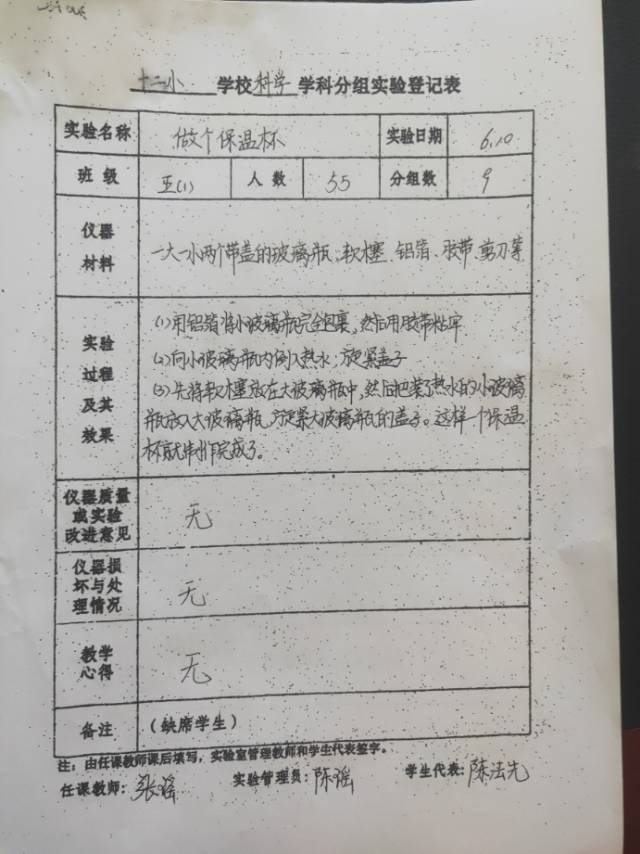 十二小 学校 科学 学科分组实验登记表
实验名称 做个保温杯 实验日期 6.10
班级 五(1) 人数 55 分组数 9
仪器材料 一大一小两个带盖的玻璃瓶、软木塞、铝箔、胶带、剪刀等
实验过程及其效果
(1)用铝箔将小玻璃瓶完全包裹,然后用胶带粘牢
(2)向小玻璃瓶内倒入热水,旋紧盖子
(3)先将软木塞放在大玻璃瓶中,然后把装了热水的小玻璃
瓶放入大玻璃瓶,旋紧大玻璃瓶的盖子。这样一个保温
杯就制作完成了。
仪器质量或实验改进意见 无
仪器损坏与处理情况 无
教学心得 无
备注 (缺席学生)
注:由任课教师课后填写,实验室管理教师和学生代表签字。
任课教师: 张瑶 实验管理员: 陈瑶 学生代表: 陈法先